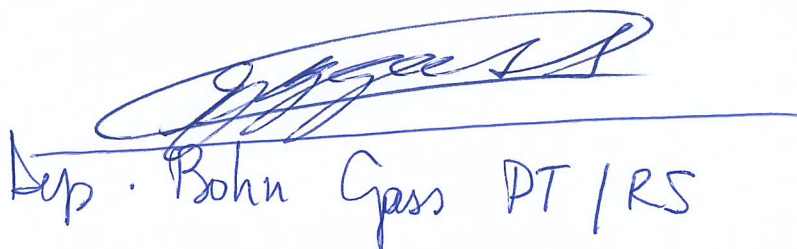 Dep. Bohn Gass PT/RS